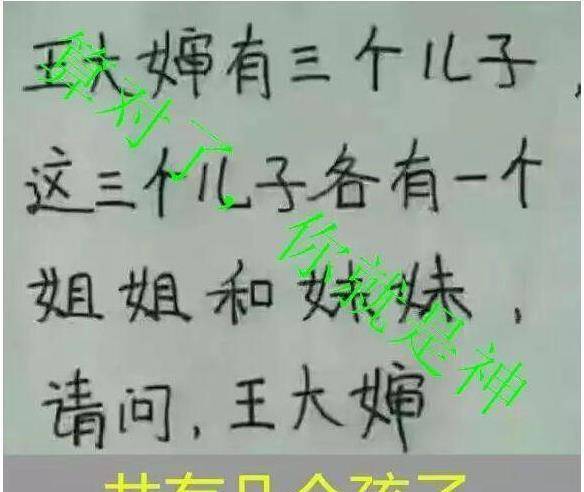 王大婶有三个儿子,
这三个儿子各有一个
姐姐和妹妹,
请问,王大婶
共有几个孩子
算对了,你就是神